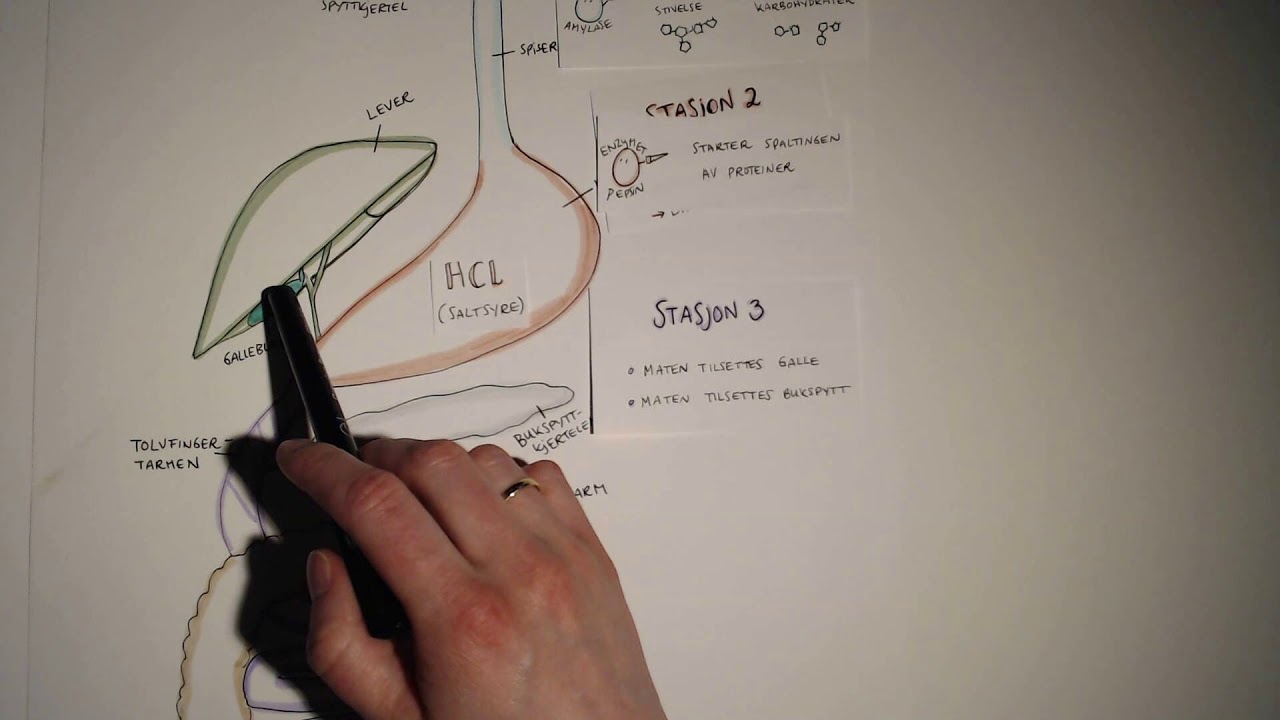 SPYTTKJERTEL
AMYLASE
STIVELSE
KARBOHYDRATER
SPISER
LEVER
STASJON 2
ENZYMET
PEPSIN
STARTER SPALTINGEN
AV PROTEINER
HCL
(SALTSYRE)
STASJON 3
• MATEN TILSETTES GALLE
• MATEN TILSETTES BUKSPYTT
TOLVFINGER-
TARMEN
BUKSPYTT-
KJERTELE